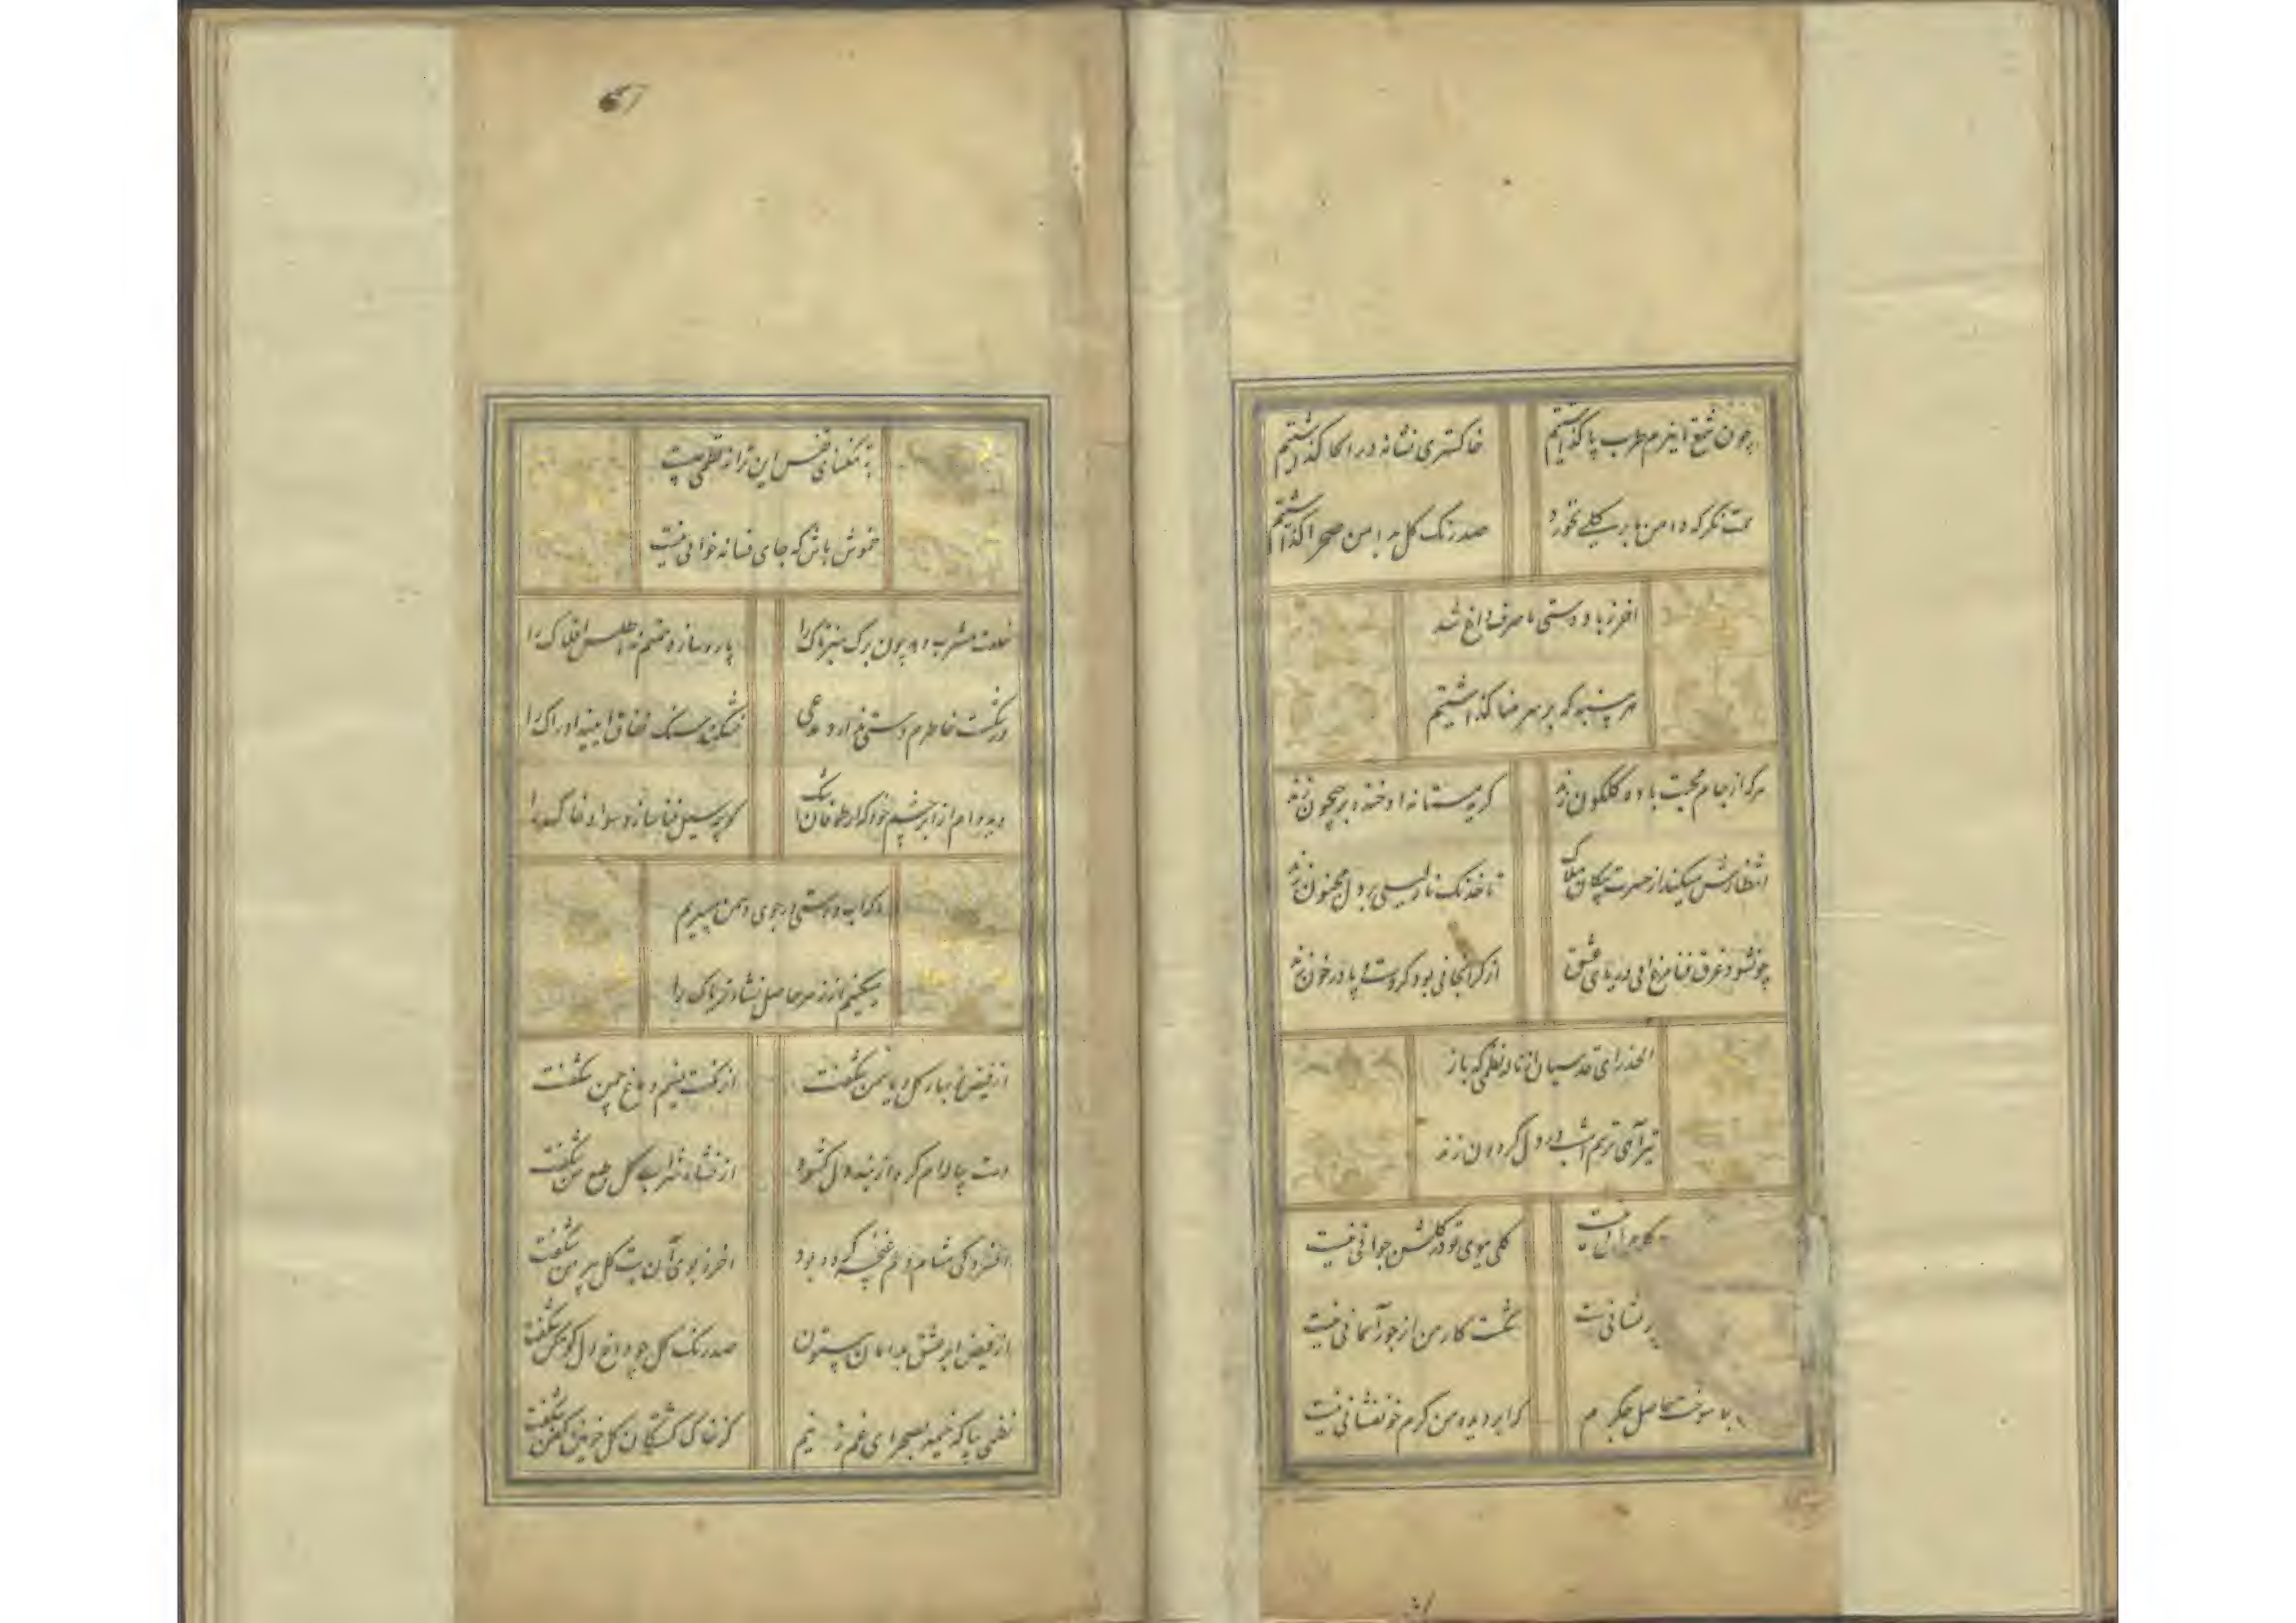 چون شمع ازین بزم طرب پا گذاشتیم خاکستری نشانه در انجا گذاشتیم
همت نگر که دامن ما برگ کلی نخورد صد رنک کل به دامن صحرا گذاشتیم
اخر نیاز دوستی ما صرف داغ شد
هر پنبه که بر سر مینا گذاشتیم
هرکه از جام محبت باده کلکون زند کریه مستانه او خنده بر جیحون زند
انتظارش میکند از حسرت پیکان هلاک تا خدنک ناز لیلی بر دل مجنون زند
چون شود غرق فنا مرغابی دریای عشق از کرانجانی بود کر دست و پا در خون زند
الحذر ای قدسیان از ناوک نظمی که باز
تیر آهی ترسم امشب در دل کردون زند
کلی ببوی تو در کلشن جوانی نیست
نشانی نیست شکست کار من از جور آسمانی نیست
سوخت حاصل جکرم که ابر دیده من کرم خونفشانی نیست
به تنکنای قفس این ترانه نظمی چیست
خموش باش که جای فسانه خوانی نیست
خلعت مشرب دهد چون برک سبز تاک را پاره سازد چشم ته اطلس افلاک را
در شکست خاطرم دستی ندارد مدعی نشکند سنک نفاق ایینه ادراک را
دیده ام از ابر چشم خود که از طوفان اشک کوچه سیل فنا سازد سواد خاک را
کر آب دوستی در جوی دشمن میبریم
میکنیم از زهر حاصل نشاء تریاک را
از فیض نوبهار کل و یاسمن شکفت از نکهت نسیم دماغ چمن شکفت
دست پیاله ام کره از بند دل کشود از نشاء شراب کل طبع من شکفت
افسردکی مشام دلم غنچه کرده بود اخر ز بوی آن بت کل پیرهن شکفت
از فیض ابر عشق بدامان بیستون صد رنک کل چو داغ دل کوهکن شکفت
نظمی بیا که خیمه بصحرای غم زنیم کز خاک کشتکان کل خونین کفن شکفت